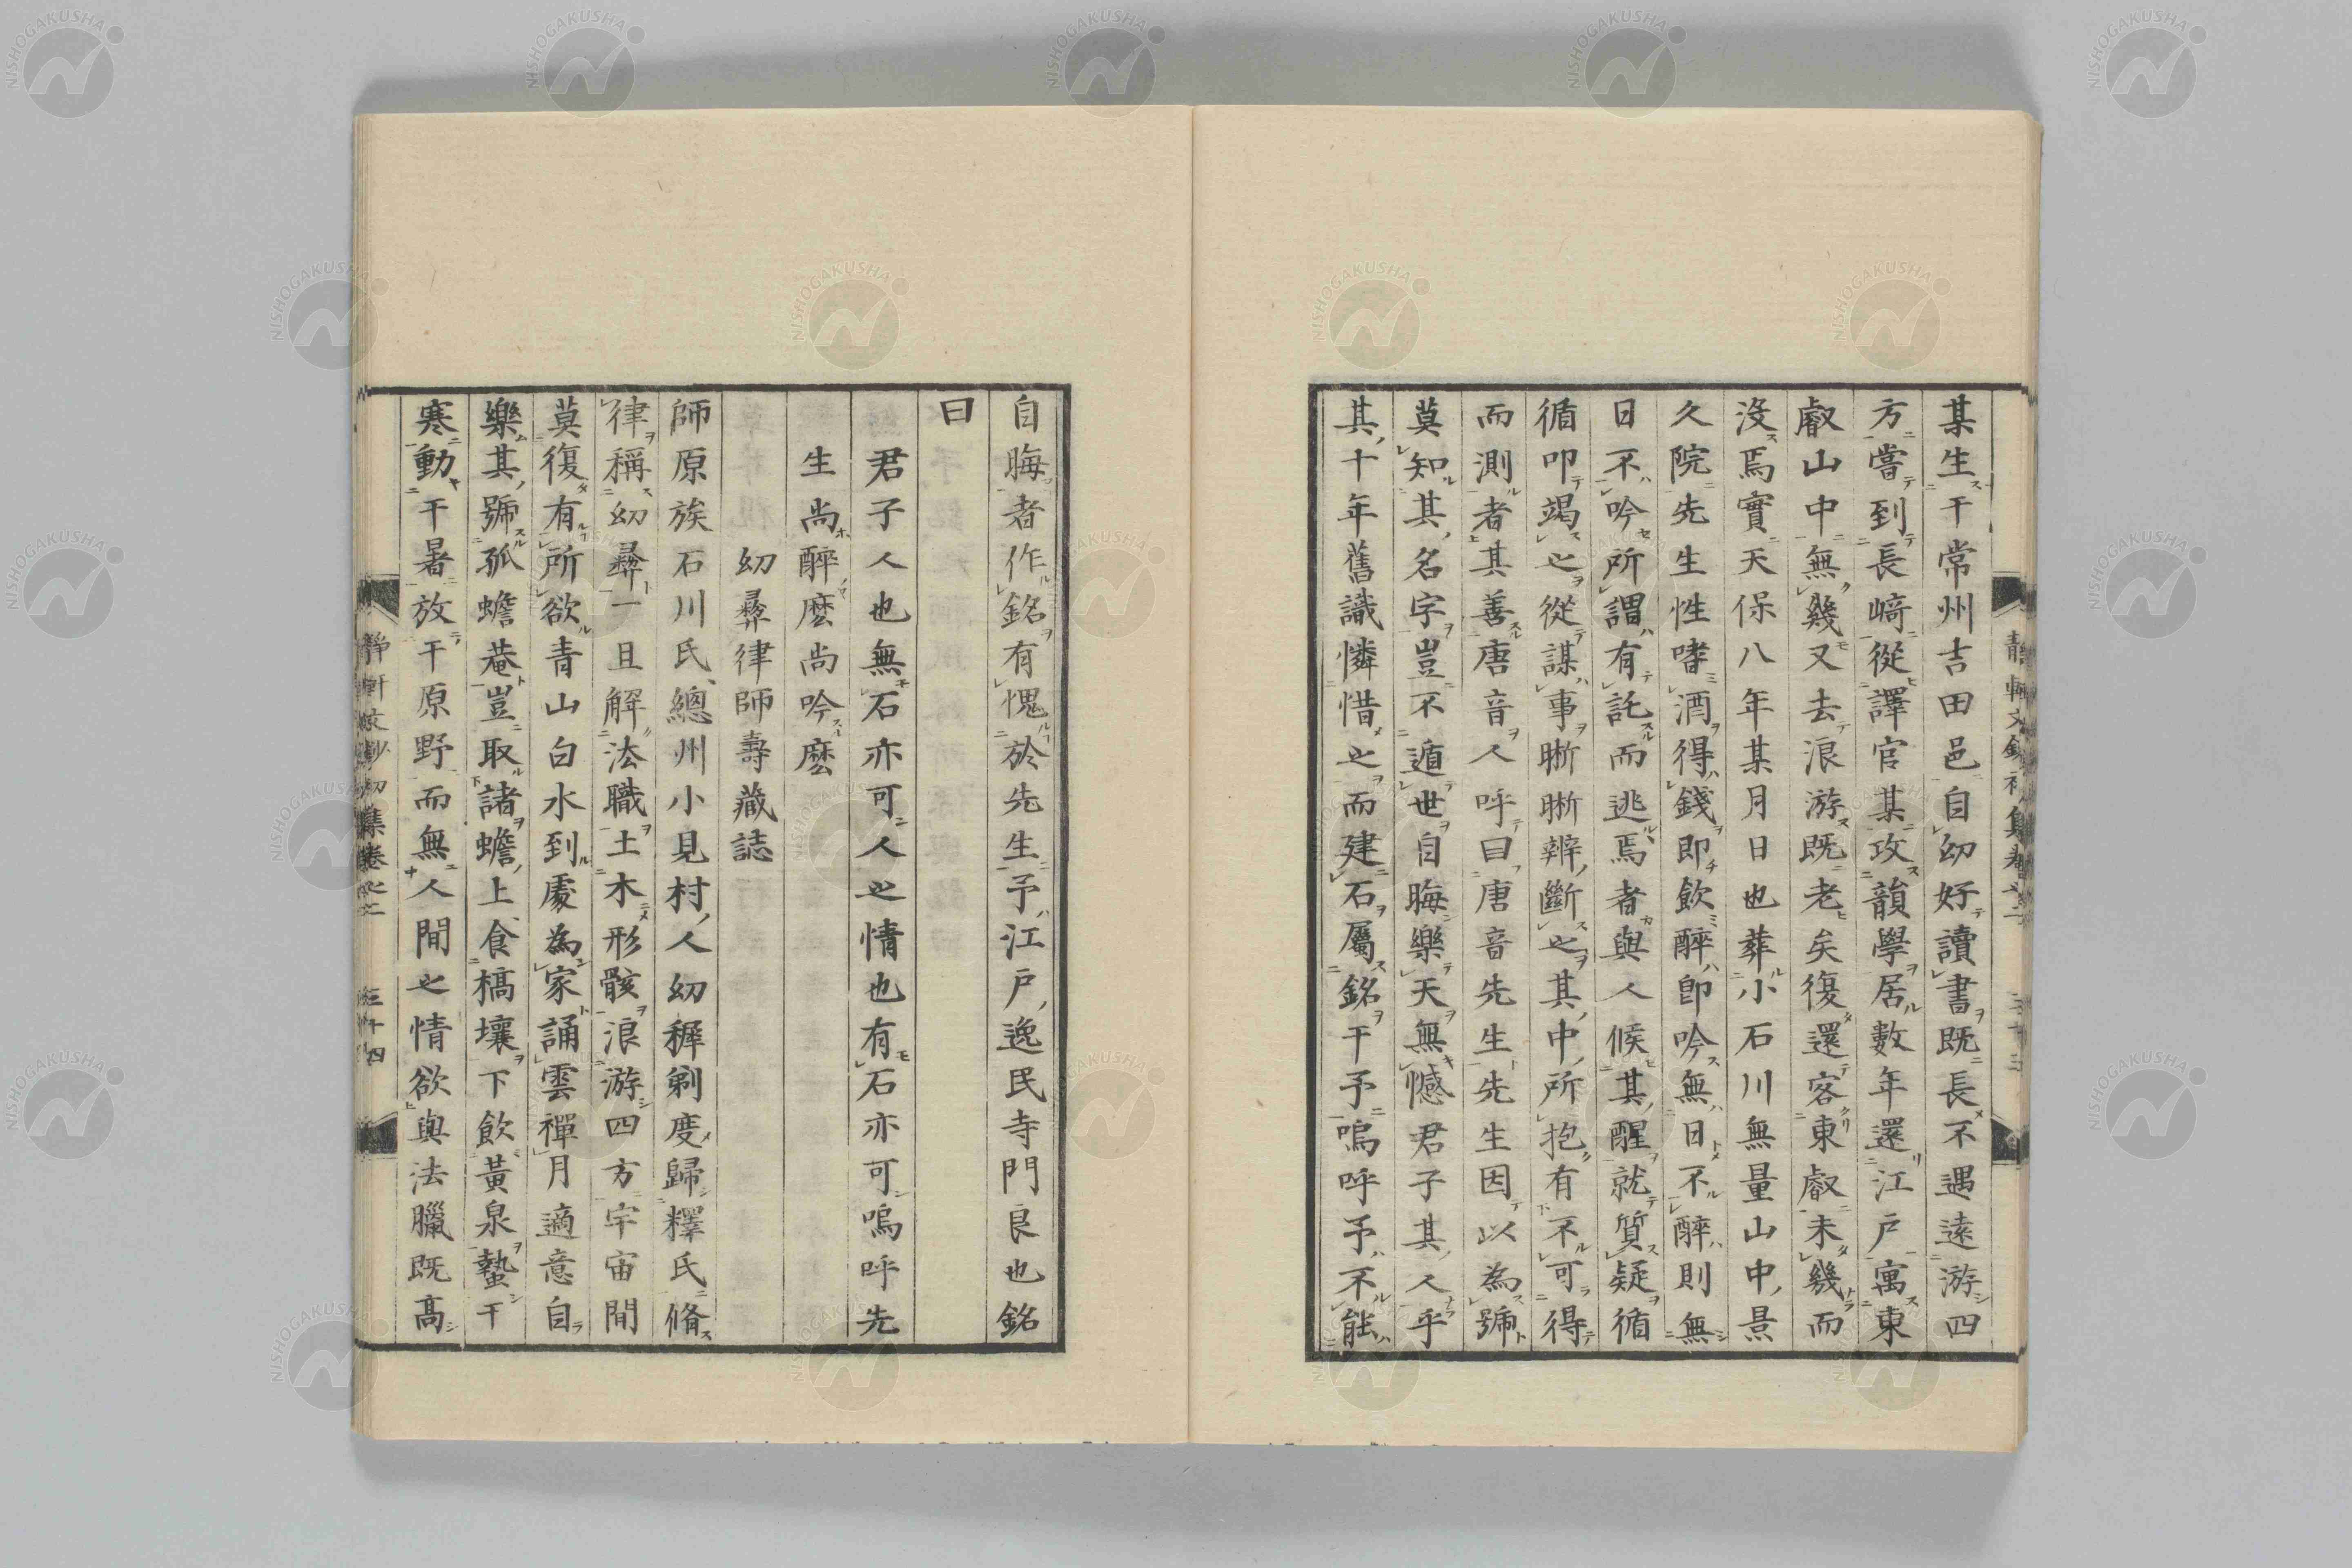 某生于常州吉田邑自幼好讀書既長不遇遠游四
方嘗到長﨑從譯官某攻韻學居數年還江戶寓東
叡山中無幾又去浪游既老矣復還客東叡未幾而
沒焉實天保八年某月日也葬小石川無量山中景
久院先生性嗜酒得錢即飲醉即吟無日不醉則無
日不吟所謂有託而逃焉者與人候其醒就質疑循
循叩竭之從謀事晰晰辨斷之其中所抱有不可得
而測者其善唐音人呼曰唐音先生先生因以為號
莫知其名字豈不遁世自晦樂天無憾君子其人乎
其十年舊識憐惜之而建石屬銘于予嗚呼予不能
自晦者作銘有愧於先生予江戶逸民寺門良也銘
曰
君子人也無石亦可人之情也有石亦可嗚呼先
生尚醉麼尚吟麼
幻彝律師壽藏誌
師原族石川氏總州小見村人幼穉剃度歸釋氏脩
律稱幻彝一旦解法職土木形骸浪游四方宇宙間
莫復有所欲青山白水到處為家誦雲禪月適意自
樂其號孤蟾菴豈取諸蟾上食槁壤下飲黃泉蟄于
寒動于暑放于原野而無人間之情欲與法臘既高
靜軒文鈔初集卷之二 三十四
NISHOGAKUSHA